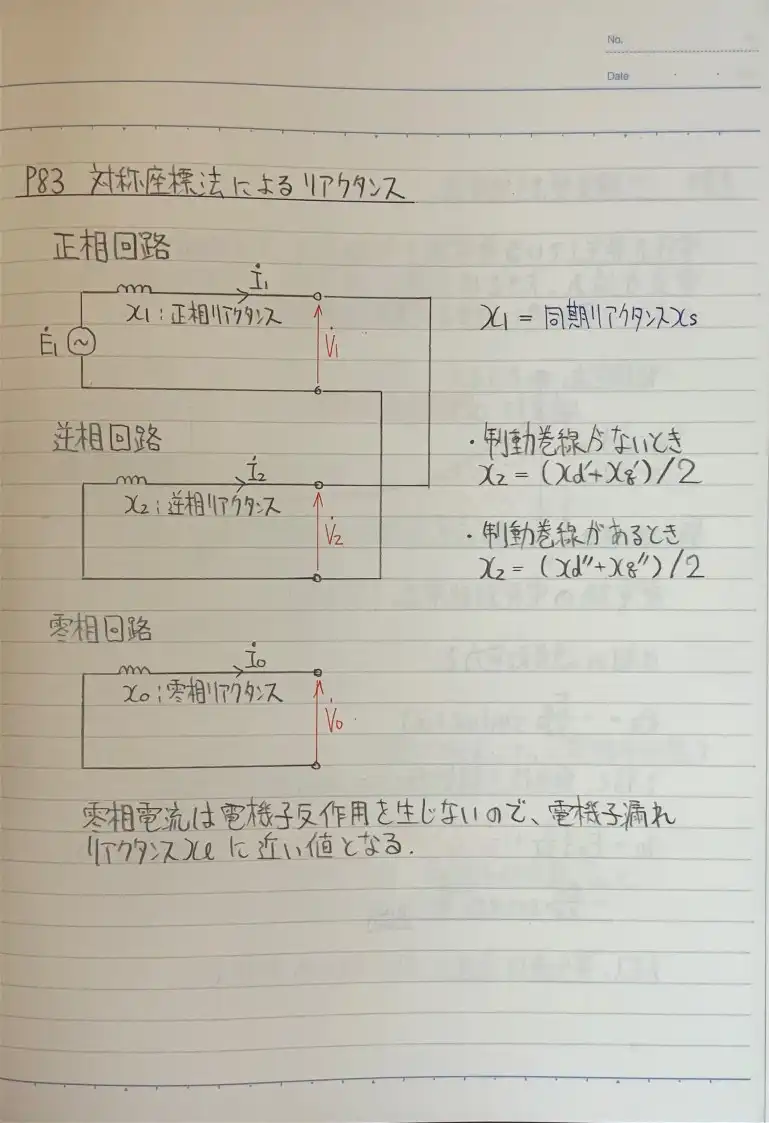 No.
Date
P83 対称座標法によるリアクタンス
正相回路
İ1
x1：正相リアクタンス
Ė1
V̇1
x1 = 同期リアクタンスxs
逆相回路
İ2
x2：逆相リアクタンス
V̇2
・制動巻線がないとき
x2 = (xd'+xq')/2
・制動巻線があるとき
x2 = (xd''+xq'')/2
零相回路
İ0
x0：零相リアクタンス
V̇0
零相電流は電機子反作用を生じないので、電機子漏れ
リアクタンスxℓに近い値となる.